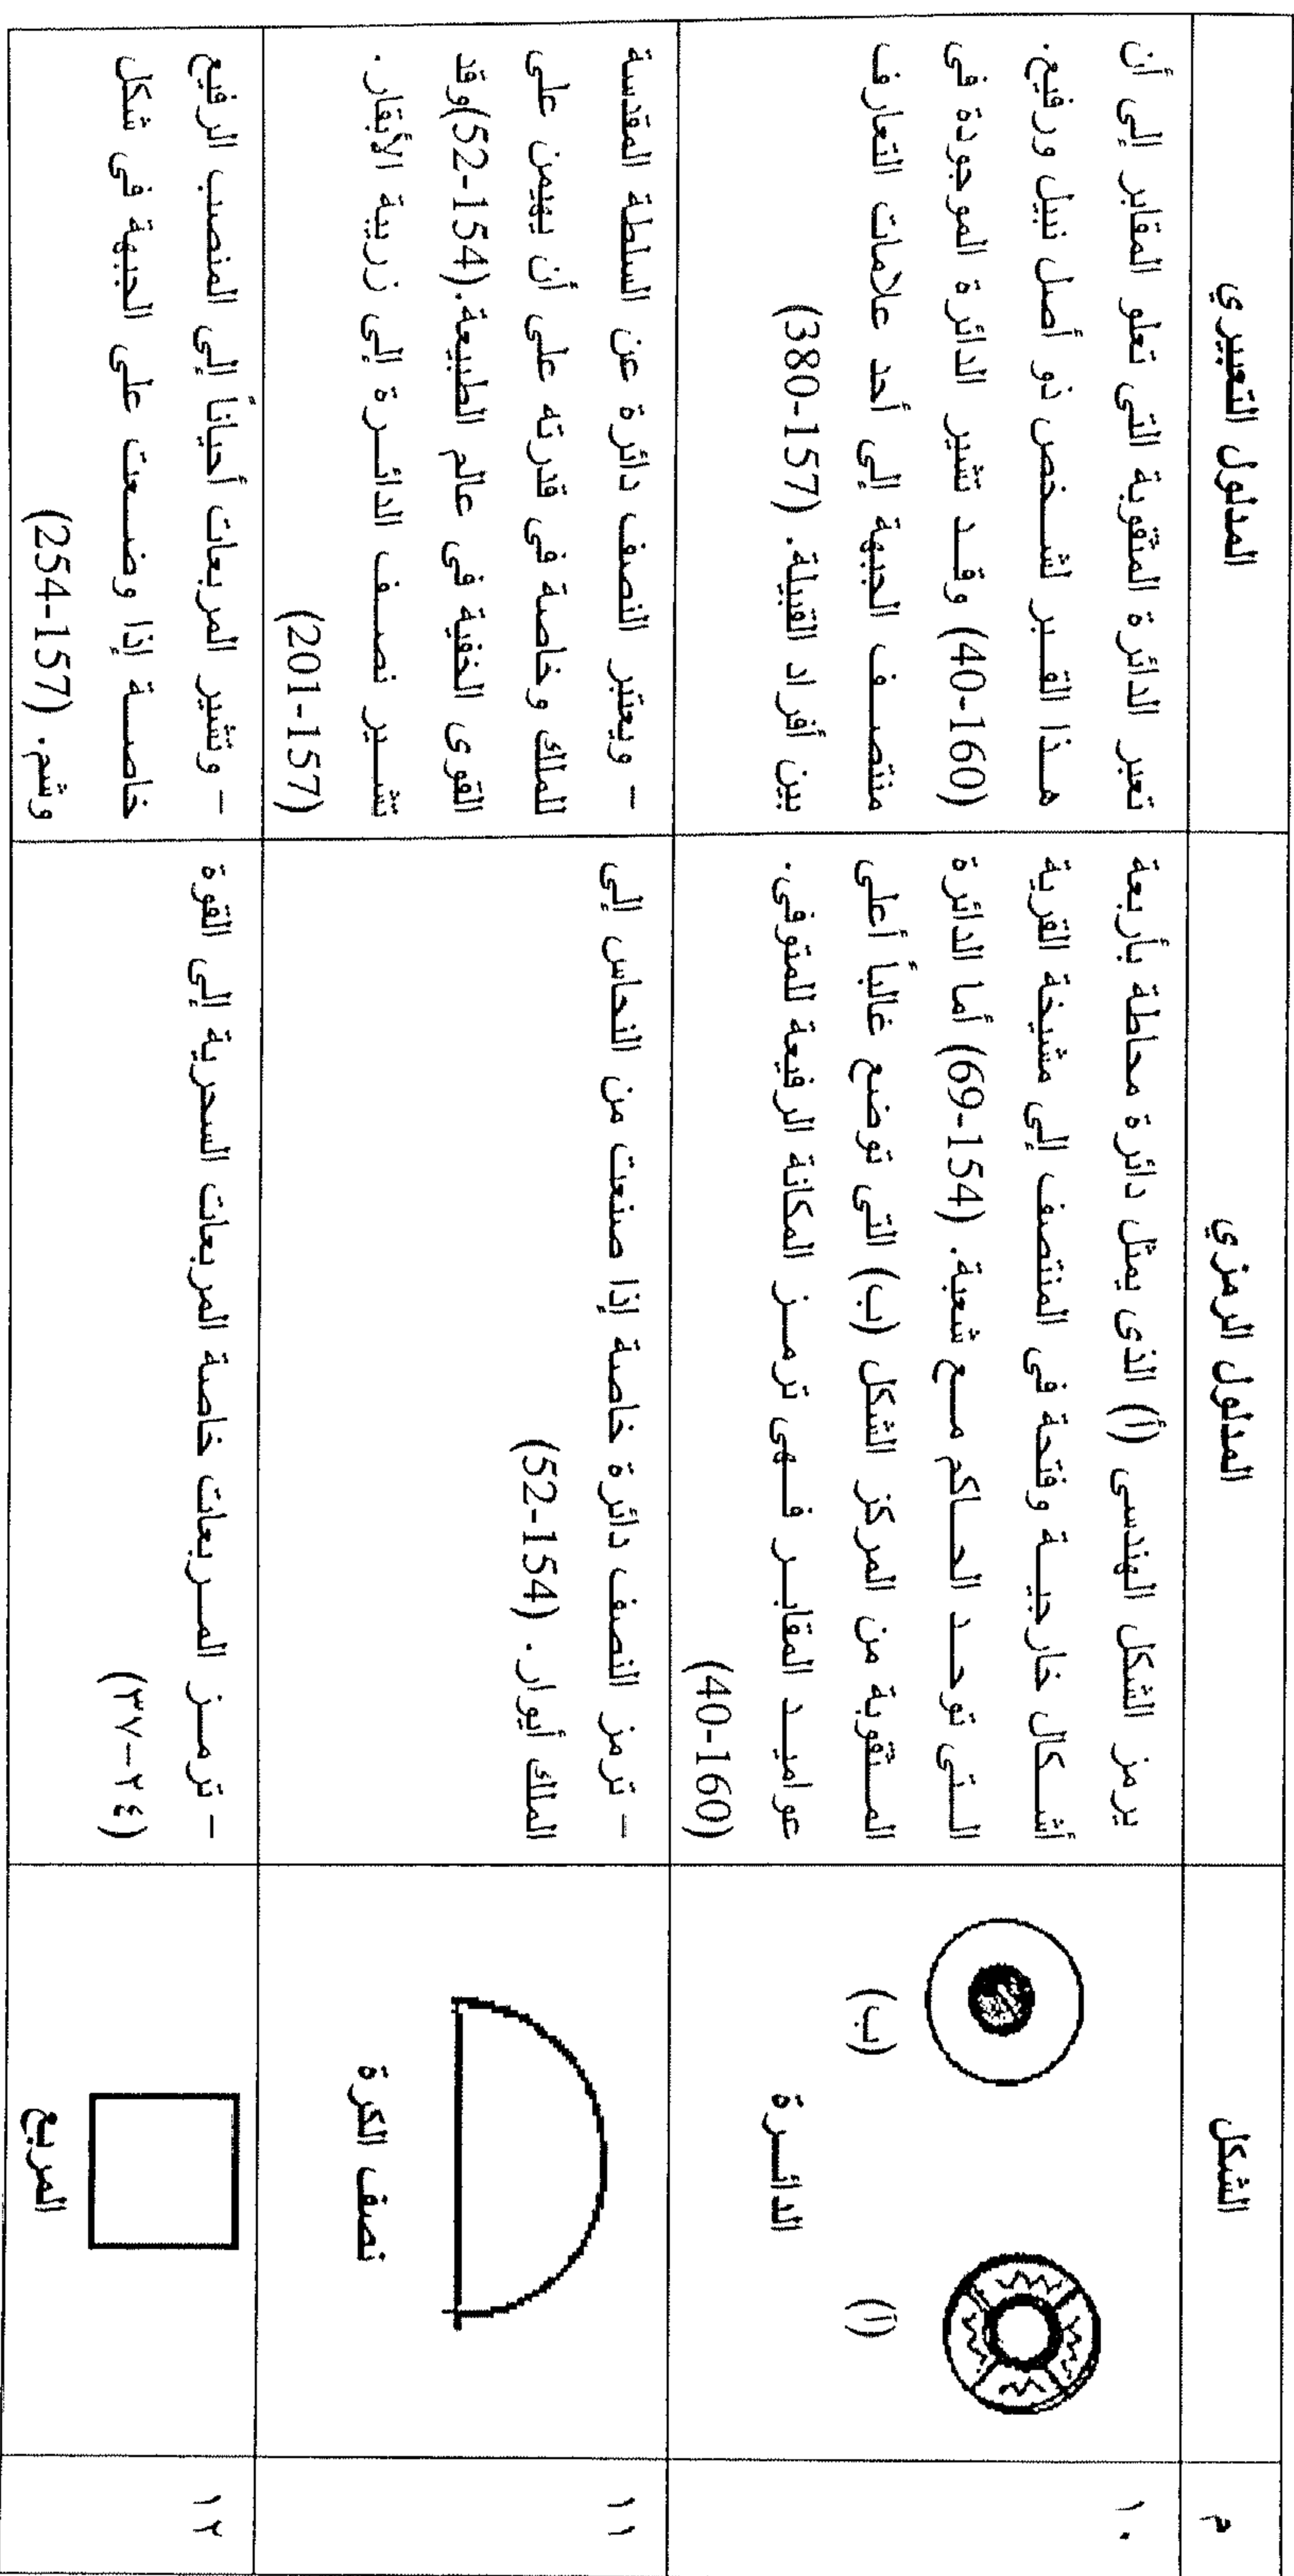 م
الشكل
المدلول الرمزي
المدلول التعبيري
١٠
(أ)
(ب)
الدائـرة
يرمز الشكل الهندسى (أ) الذى يمثل دائرة محاطة بأربعة
أشـكال خارجيـة وفتحة فى المنتصف إلى مشيخة القرية
الـتى توحـد الحـاكم مـع شعبة. (154-69) أما الدائرة
المـثقوبة من المركز الشكل (ب) التى توضع غالباً أعلى
عواميـد المقابـر فـهى ترمـز المكانة الرفيعة للمتوفى.
(160-40)
تعبر الدائرة المثقوبة التى تعلو المقابر إلى أن
هـذا القـبر لشـخص ذو أصل نبيل ورفيع.
(160-40) وقـد تشير الدائرة الموجودة فى
منتصـف الجبهة إلى أحد علامات التعارف
بين أفراد القبيلة. (157-380)
١١
نصف الكرة
– ترمز النصف دائرة خاصة إذا صنعت من النحاس إلى
الملك أيوار. (154-52)
– ويعتبر النصف دائرة عن السلطة المقدسة
للملك وخاصة فى قدرته على أن يهيمن على
القوى الخفية فى عالم الطبيعة.(154-52)وقد
تشـير نصـف الدائـرة إلى زريبة الأبقار.
(157-201)
١٢
المربع
– ترمـز المـربعات خاصة المربعات السحرية إلى القوة
(٢٤–٣٧)
– وتشير المربعات أحياناً إلى المنصب الرفيع
خاصـة إذا وضـعت على الجبهة فى شكل
وشم. (157-254)